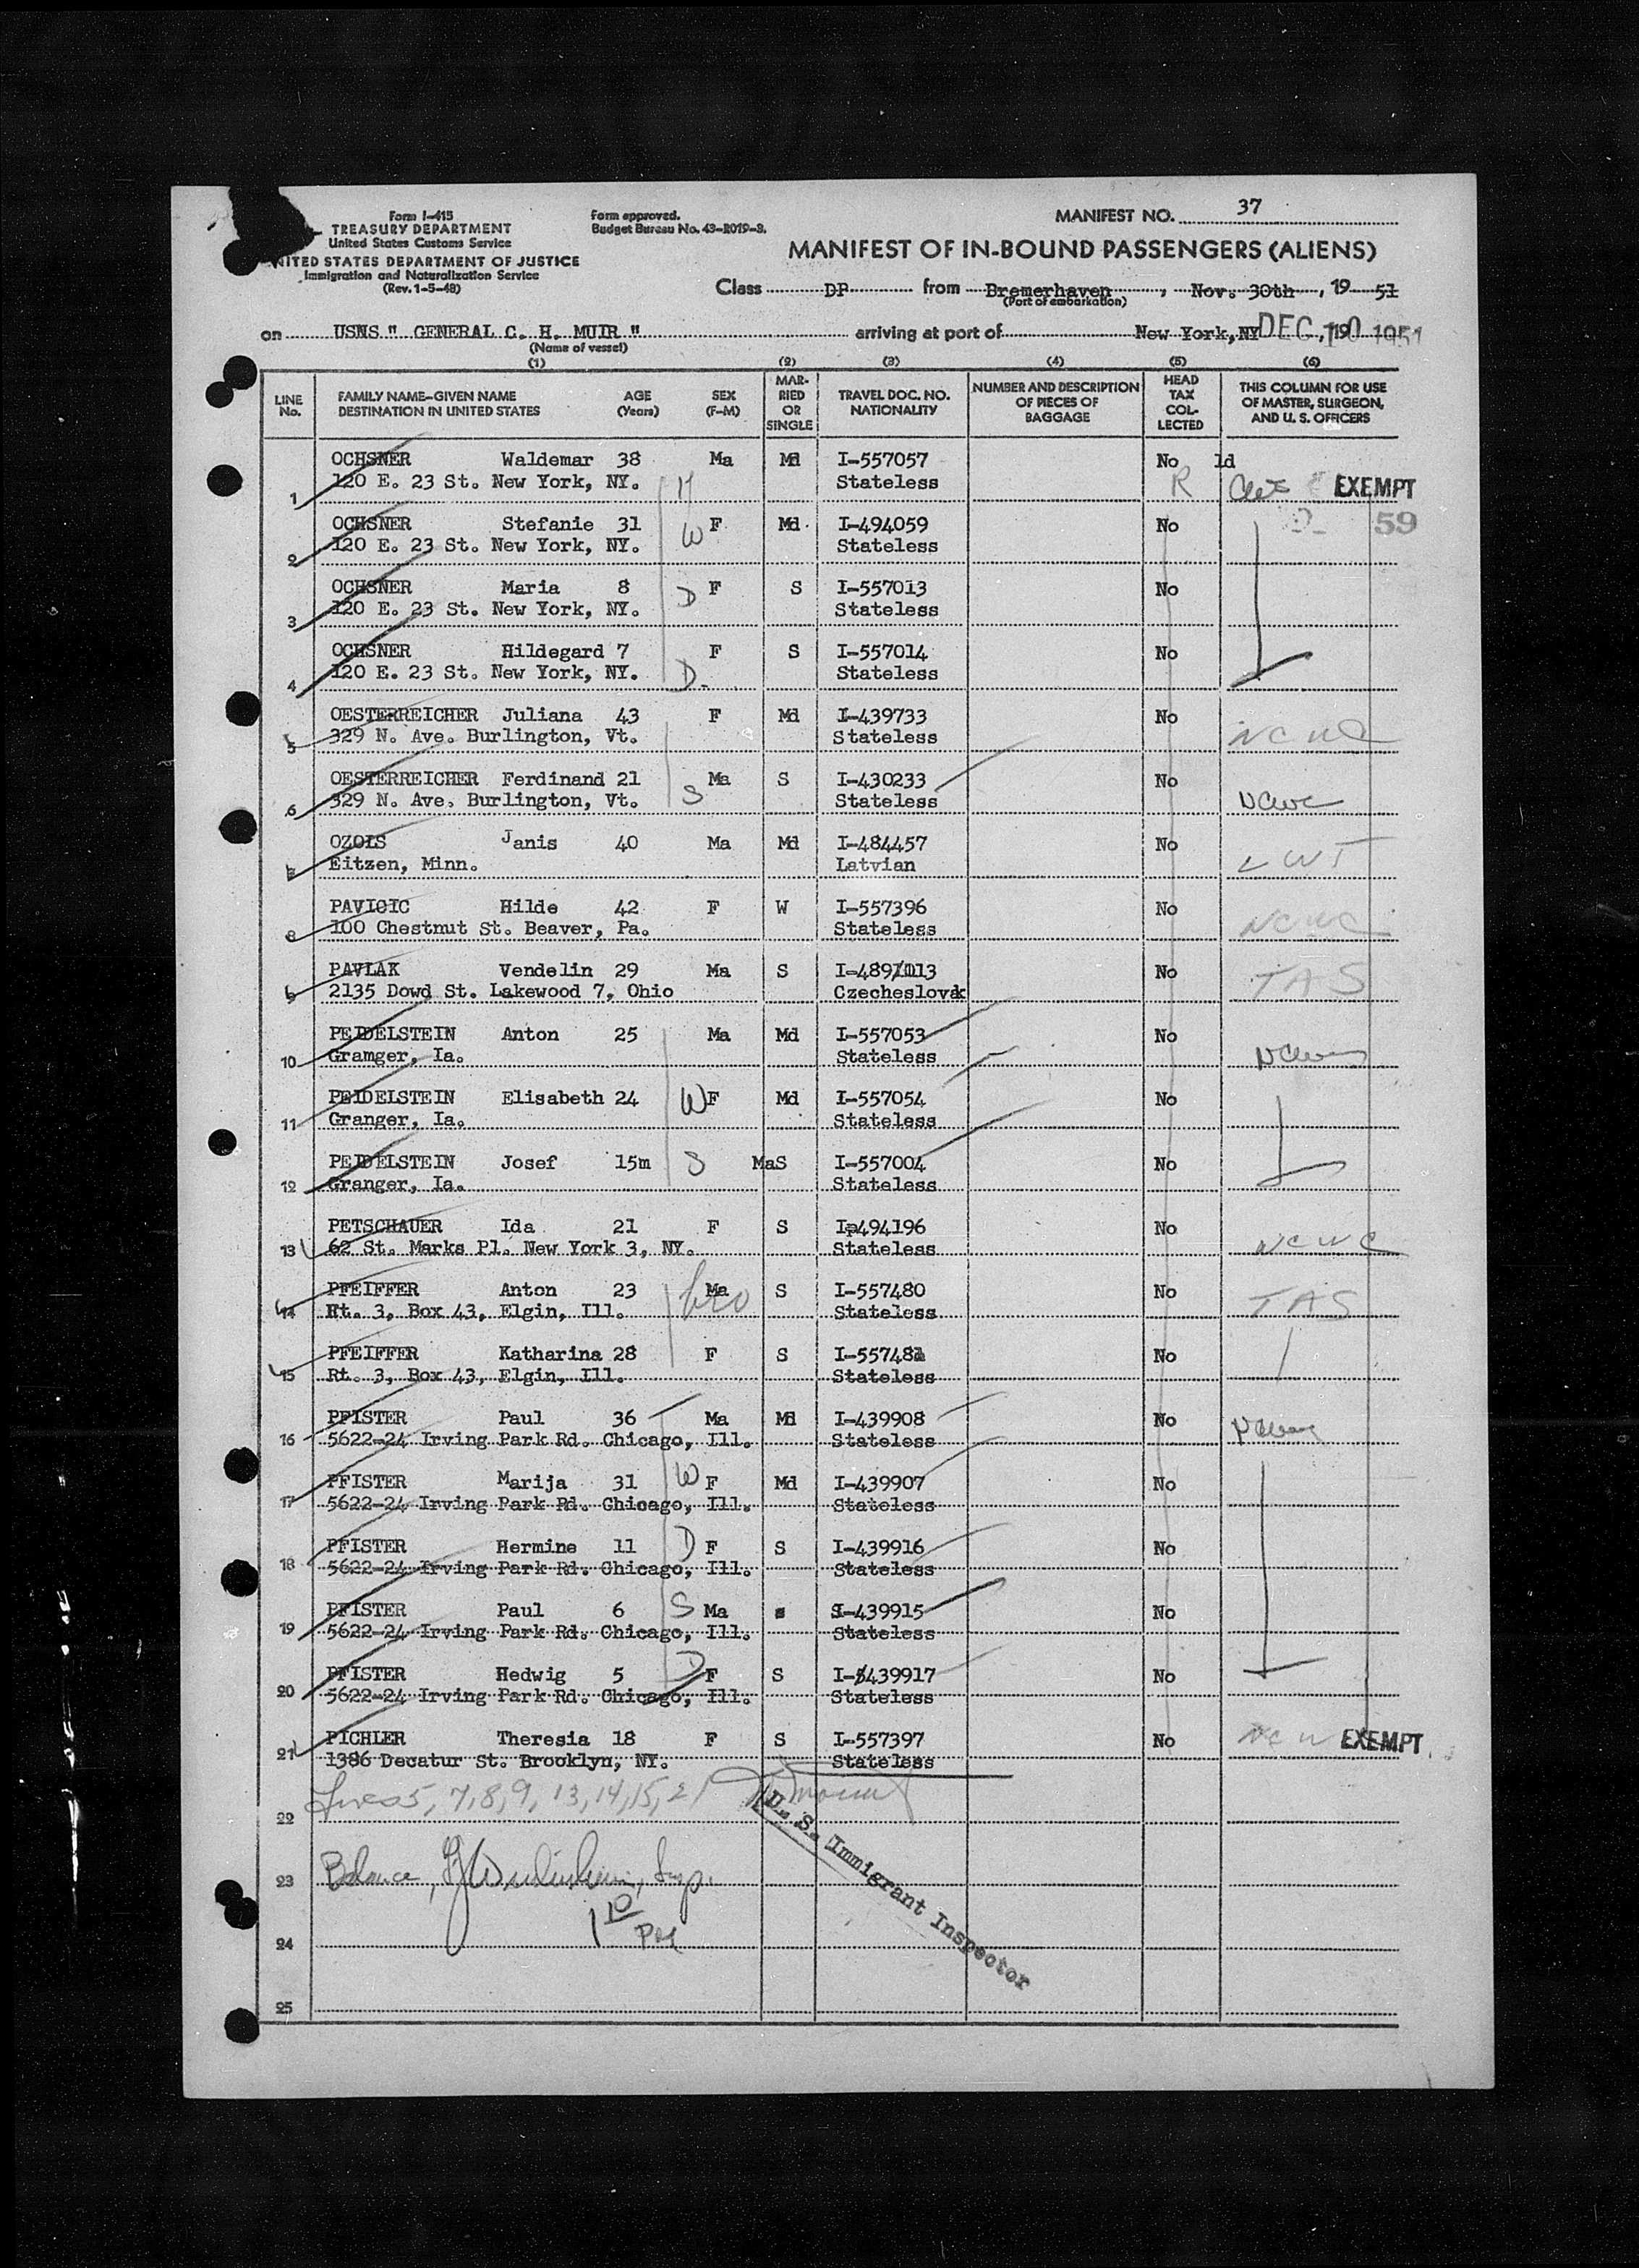 Form I-415
TREASURY DEPARTMENT
United States Customs Service
UNITED STATES DEPARTMENT OF JUSTICE
Immigration and Naturalization Service
(Rev. 1-5-48)
Form approved.
Budget Bureau No. 43-R019-3.
MANIFEST NO. 37
MANIFEST OF IN-BOUND PASSENGERS (ALIENS)
Class DP from Bremerhaven, Nov. 30th, 19 51
(Port of embarkation)
on USNS " GENERAL C. H. MUIR " arriving at port of New York, NY DEC 10 1951
(Name of vessel)
(1) (2) (3) (4) (5) (6)
LINE No. FAMILY NAME-GIVEN NAME DESTINATION IN UNITED STATES AGE (Years) SEX (F-M) MARRIED OR SINGLE TRAVEL DOC. NO. NATIONALITY NUMBER AND DESCRIPTION OF PIECES OF BAGGAGE HEAD TAX COLLECTED THIS COLUMN FOR USE OF MASTER, SURGEON, AND U. S. OFFICERS
OCHSNER Waldemar 38 Ma Md I-557057 No ld
1 120 E. 23 St. New York, NY. H Stateless R EXEMPT
OCHSNER Stefanie 31 F Md I-494059 No 59
2 120 E. 23 St. New York, NY. W Stateless
OCHSNER Maria 8 D F S I-557013 No
3 120 E. 23 St. New York, NY. Stateless
OCHSNER Hildegard 7 F S I-557014 No
4 120 E. 23 St. New York, NY. D Stateless
OESTERREICHER Juliana 43 F Md I-439733 No
5 329 N. Ave. Burlington, Vt. Stateless NCWC
OESTERREICHER Ferdinand 21 Ma S I-430233 No
6 329 N. Ave. Burlington, Vt. S Stateless NCWC
OZOLS Janis 40 Ma Md I-484457 No
7 Eitzen, Minn. Latvian LWF
PAVICIC Hilde 42 F W I-557396 No
8 100 Chestnut St. Beaver, Pa. Stateless NCWC
PAVLAK Vendelin 29 Ma S I-489/1013 No
9 2135 Dowd St. Lakewood 7, Ohio Czecheslovak TAS
PEIDELSTEIN Anton 25 Ma Md I-557053 No
10 Gramger, Ia. Stateless NCWC
PEIDELSTEIN Elisabeth 24 W F Md I-557054 No
11 Granger, Ia. Stateless
PEIDELSTEIN Josef 15m S MaS I-557004 No
12 Granger, Ia. Stateless
PETSCHAUER Ida 21 F S I-494196 No
13 62 St. Marks Pl. New York 3, NY. Stateless NCWC
PFEIFFER Anton 23 bro Ma S I-557480 No
14 Rt. 3, Box 43, Elgin, Ill. Stateless TAS
PFEIFFER Katharina 28 F S I-557481 No
15 Rt. 3, Box 43, Elgin, Ill. Stateless
PFISTER Paul 36 Ma Md I-439908 No NCWC
16 5622-24 Irving Park Rd. Chicago, Ill. Stateless
PFISTER Marija 31 W F Md I-439907 No
17 5622-24 Irving Park Rd. Chicago, Ill. Stateless
PFISTER Hermine 11 D F S I-439916 No
18 5622-24 Irving Park Rd. Chicago, Ill. Stateless
PFISTER Paul 6 S Ma s I-439915 No
19 5622-24 Irving Park Rd. Chicago, Ill. Stateless
PFISTER Hedwig 5 D F S I-439917 No
20 5622-24 Irving Park Rd. Chicago, Ill. Stateless
PICHLER Theresia 18 F S I-557397 No NCW EXEMPT
21 1386 Decatur St. Brooklyn, NY. Stateless
22 Lines 5, 7, 8, 9, 13, 14, 15, 21
U. S. Immigrant Inspector
23 Balance, Insp.
24
25